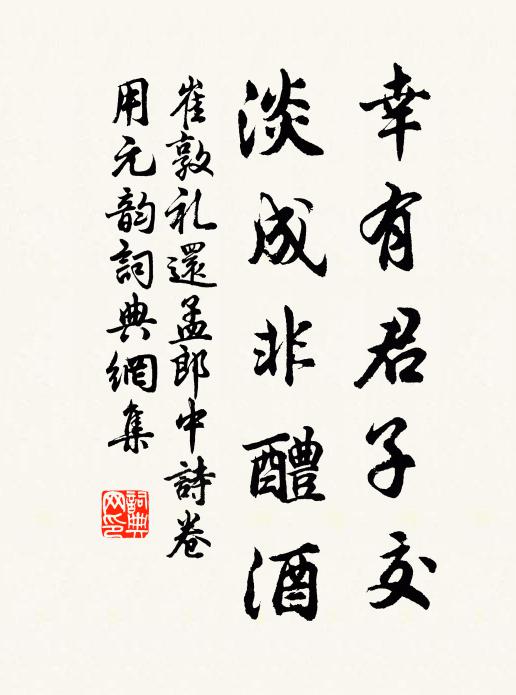 幸有君子交
淡成非醴酒
崔敦礼還孟郎中詩卷
用元韵詞典網集
詞典
网印